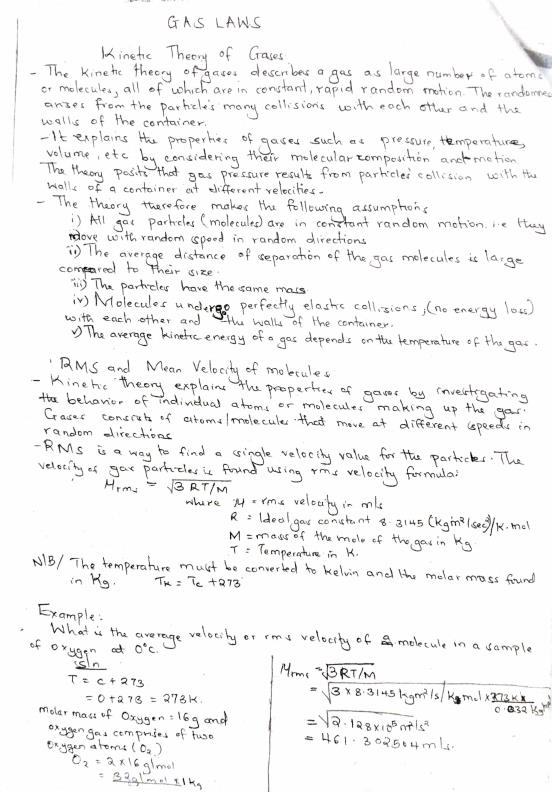 GAS LAWS
Kinetic Theory of Gases
- The kinetic theory of gases describes a gas as large number of atoms
or molecules, all of which are in constant, rapid random motion. The randomnes
arises from the particle's many collisions with each other and the
walls of the container.
- It explains the properties of gases such as pressure, temperature,
volume, etc by considering their molecular composition and motion
The theory posits that gas pressure results from particles' collision with the
walls of a container at different velocities.
- The theory therefore makes the following assumptions
i) All gas particles (molecules) are in constant random motion. i.e they
move with random speed in random directions
ii) The average distance of separation of the gas molecules is large
compared to their size.
iii) The particles have the same mass
iv) Molecules undergo perfectly elastic collisions, (no energy loss)
with each other and the walls of the container.
v) The average kinetic energy of a gas depends on the temperature of the gas.
RMS and Mean Velocity of molecules
- Kinetic theory explains the properties of gases by investigating
the behavior of individual atoms or molecules making up the gas.
Gases consists of atoms/molecules that move at different speeds in
random directions
- RMS is a way to find a single velocity value for the particles. The
velocity of gas particles is found using rms velocity formula:
μrms = √3RT/M
where μ = rms velocity in m/s
R = Ideal gas constant 8.3145 (kgm²/sec²)/K.mol
M = mass of the mole of the gas in kg
T = Temperature in K.
N/B/ The temperature must be converted to kelvin and the molar mass found
in Kg. TK = Tc + 273
Example:
What is the average velocity or rms velocity of a molecule in a sample
of oxygen at 0°c.
sln
T = c + 273
= 0 + 273 = 273K.
molar mass of Oxygen = 16g and
oxygen gas comprises of two
oxygen atoms (O₂)
O₂ = 2 x 16 g/mol
= 32g/mol x 1kg
μrms = √3RT/M
= √3 x 8.3145 kgm²/s / K mol x 273K x
0.032 kg
= √2.128x10⁵ m²/s²
= 461.302504 m/s.